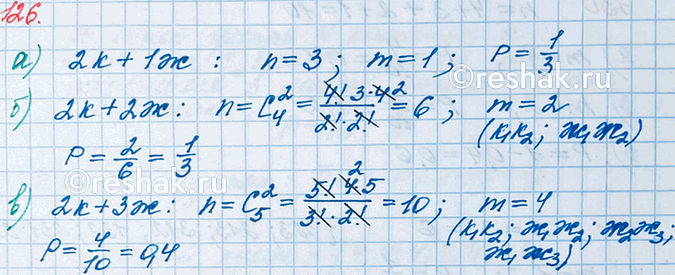 126.
а) 2к + 1ж : n = 3; m = 1; P = 1/3
б) 2к + 2ж: n = C₄² = (4! 3·4 2)/(2!·2!) = 6; m = 2
(к₁к₂; ж₁ж₂)
P = 2/6 = 1/3
в) 2к + 3ж: n = C₅² = (5! 4·5 2)/(3!·2!) = 10; m = 4
(к₁к₂; ж₁ж₂; ж₂ж₃;
ж₁ж₃)
P = 4/10 = 0,4
©reshak.ru